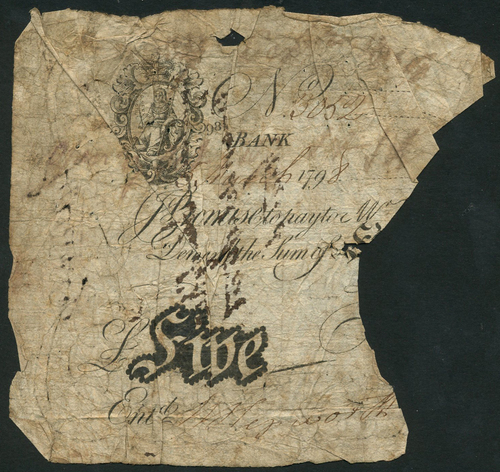 No 3052
98
BANK
6 1798
I Promise to pay to Mr
Demand the Sum of
£ Five
Entd